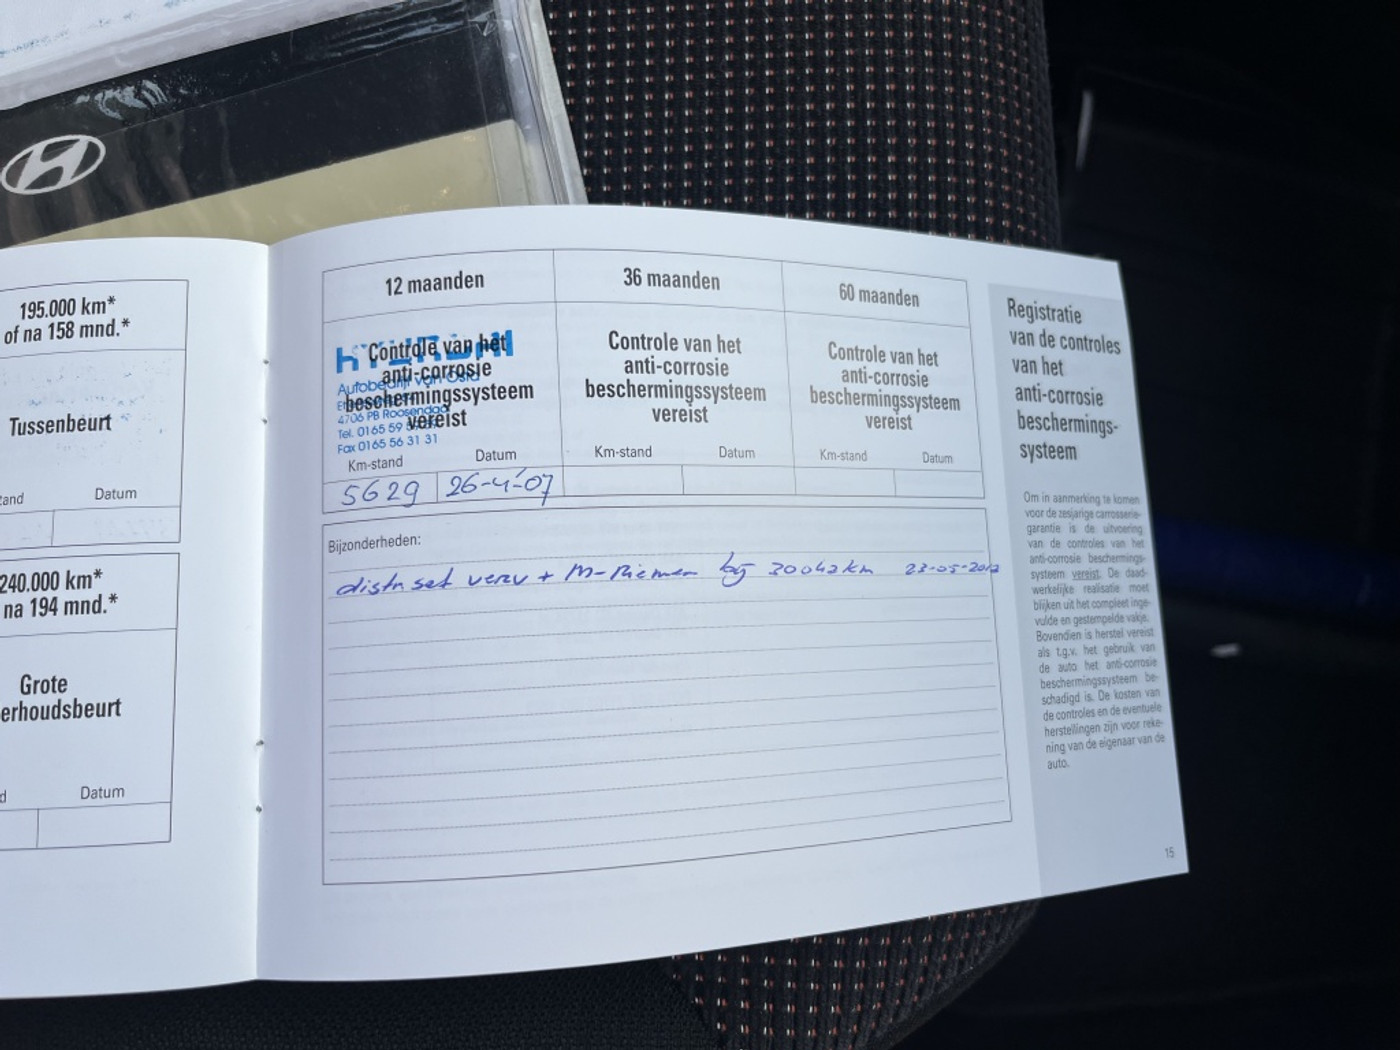 195.000 km*
of na 158 mnd.*
Tussenbeurt
Datum
240.000 km*
na 194 mnd.*
Grote
erhoudsbeurt
Datum
12 maanden
HYUNDAI
Controle van het
anti-corrosie
beschermingssysteem
vereist
Autobedrijf van
4706 PB Roosendaal
Tel. 0165 59
Fax 0165 56 31 31
Km-stand Datum
5629 26-4-07
36 maanden
Controle van het
anti-corrosie
beschermingssysteem
vereist
Km-stand Datum
60 maanden
Controle van het
anti-corrosie
beschermingssysteem
vereist
Km-stand Datum
Bijzonderheden:
distr set verv + M-Riemen bij 30042km 23-05-2012
Registratie
van de controles
van het
anti-corrosie
beschermings-
systeem
Om in aanmerking te komen
voor de zesjarige carrosserie-
garantie is de uitvoering
van de controles van het
anti-corrosie beschermings-
systeem vereist. De daad-
werkelijke realisatie moet
blijken uit het compleet inge-
vulde en gestempelde vakje.
Bovendien is herstel vereist
als t.g.v. het gebruik van
de auto het anti-corrosie
beschermingssysteem be-
schadigd is. De kosten van
de controles en de eventuele
herstellingen zijn voor reke-
ning van de eigenaar van de
auto.
15